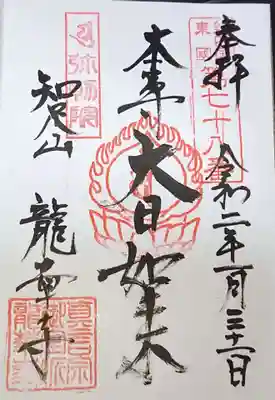 奉拝 令和二年一月三十一日
東國
七十八番
本尊
大日如来
弥勒院
智足山
龍華寺
真言宗